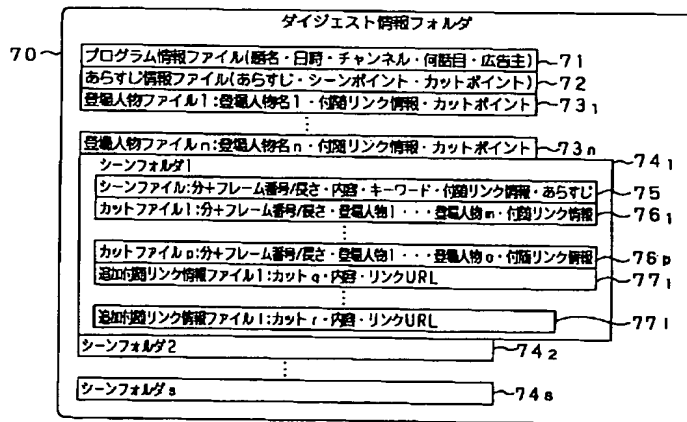 ダイジェスト情報フォルダ
70
プログラム情報ファイル(題名・日時・チャンネル・何話目・広告主) 71
あらすじ情報ファイル(あらすじ・シーンポイント・カットポイント) 72
登場人物ファイル1:登場人物名1・付随リンク情報・カットポイント 73₁
⋮
登場人物ファイルn:登場人物名n・付随リンク情報・カットポイント 73n
シーンフォルダ1 74₁
シーンファイル:分+フレーム番号/長さ・内容・キーワード・付随リンク情報・あらすじ 75
カットファイル1:分+フレーム番号/長さ・登場人物1・・・登場人物m・付随リンク情報 76₁
⋮
カットファイルp:分+フレーム番号/長さ・登場人物1・・・登場人物o・付随リンク情報 76p
追加付随リンク情報ファイル1:カットq・内容・リンクURL 77₁
⋮
追加付随リンク情報ファイルl:カットr・内容・リンクURL 77l
シーンフォルダ2 74₂
⋮
シーンフォルダs 74s